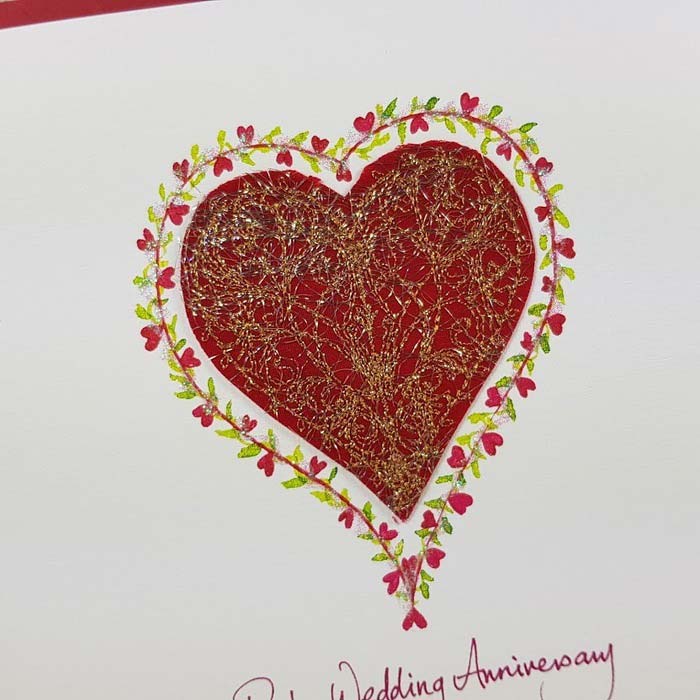 Ruby Wedding Anniversary